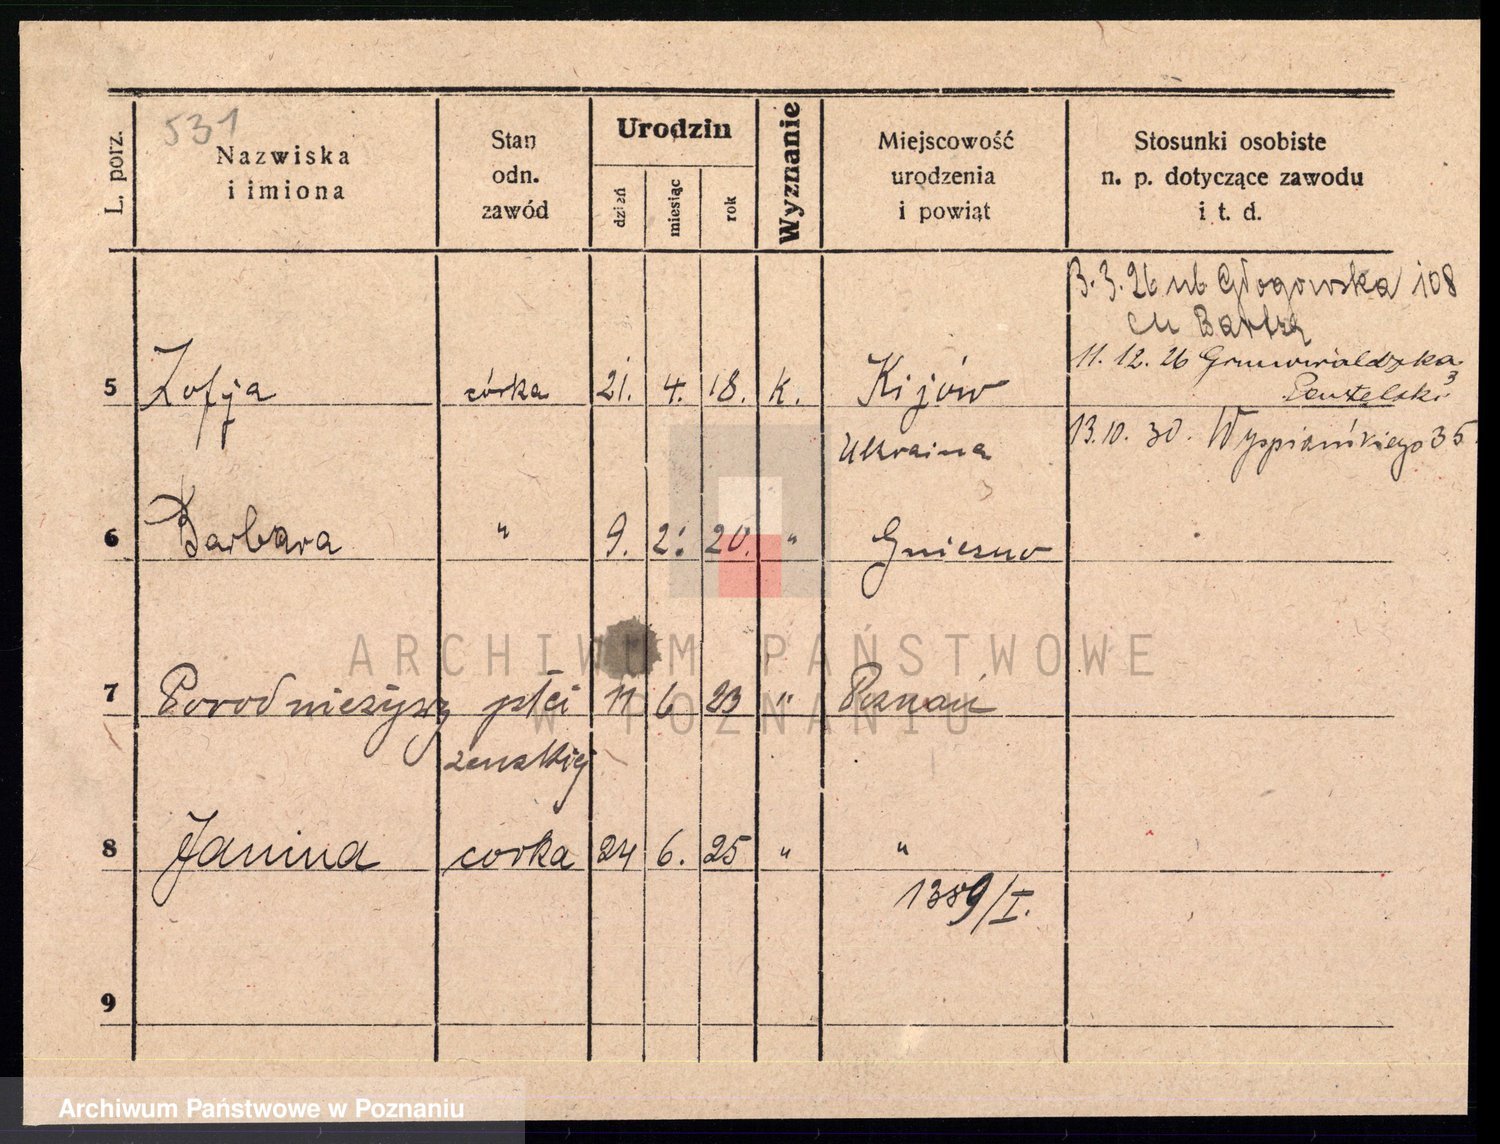 531
L. porz.
Nazwiska
i imiona
Stan
odn.
zawód
Urodzin
dzień
miesiąc
rok
Wyznanie
Miejscowość
urodzenia
i powiąt
Stosunki osobiste
n. p. dotyczące zawodu
i t. d.
3. 26 Głogowska 108
11. 12. 26 Grunwaldzka 3
5 Zofja córka 21. 4. 18. K. Kijów
Ukraina
13.10. 30. Wyspiańkiego 35
6 Barbara " 9. 2. 20. " Gniezno
7 Porod nieżywy płci 11 6 23 " Poznań
żenskiej
8 Janina corka 24 6. 25 " "
1389/I.
9
ARCHIWUM PAŃSTWOWE
W POZNANIU
Archiwum Państwowe w Poznaniu